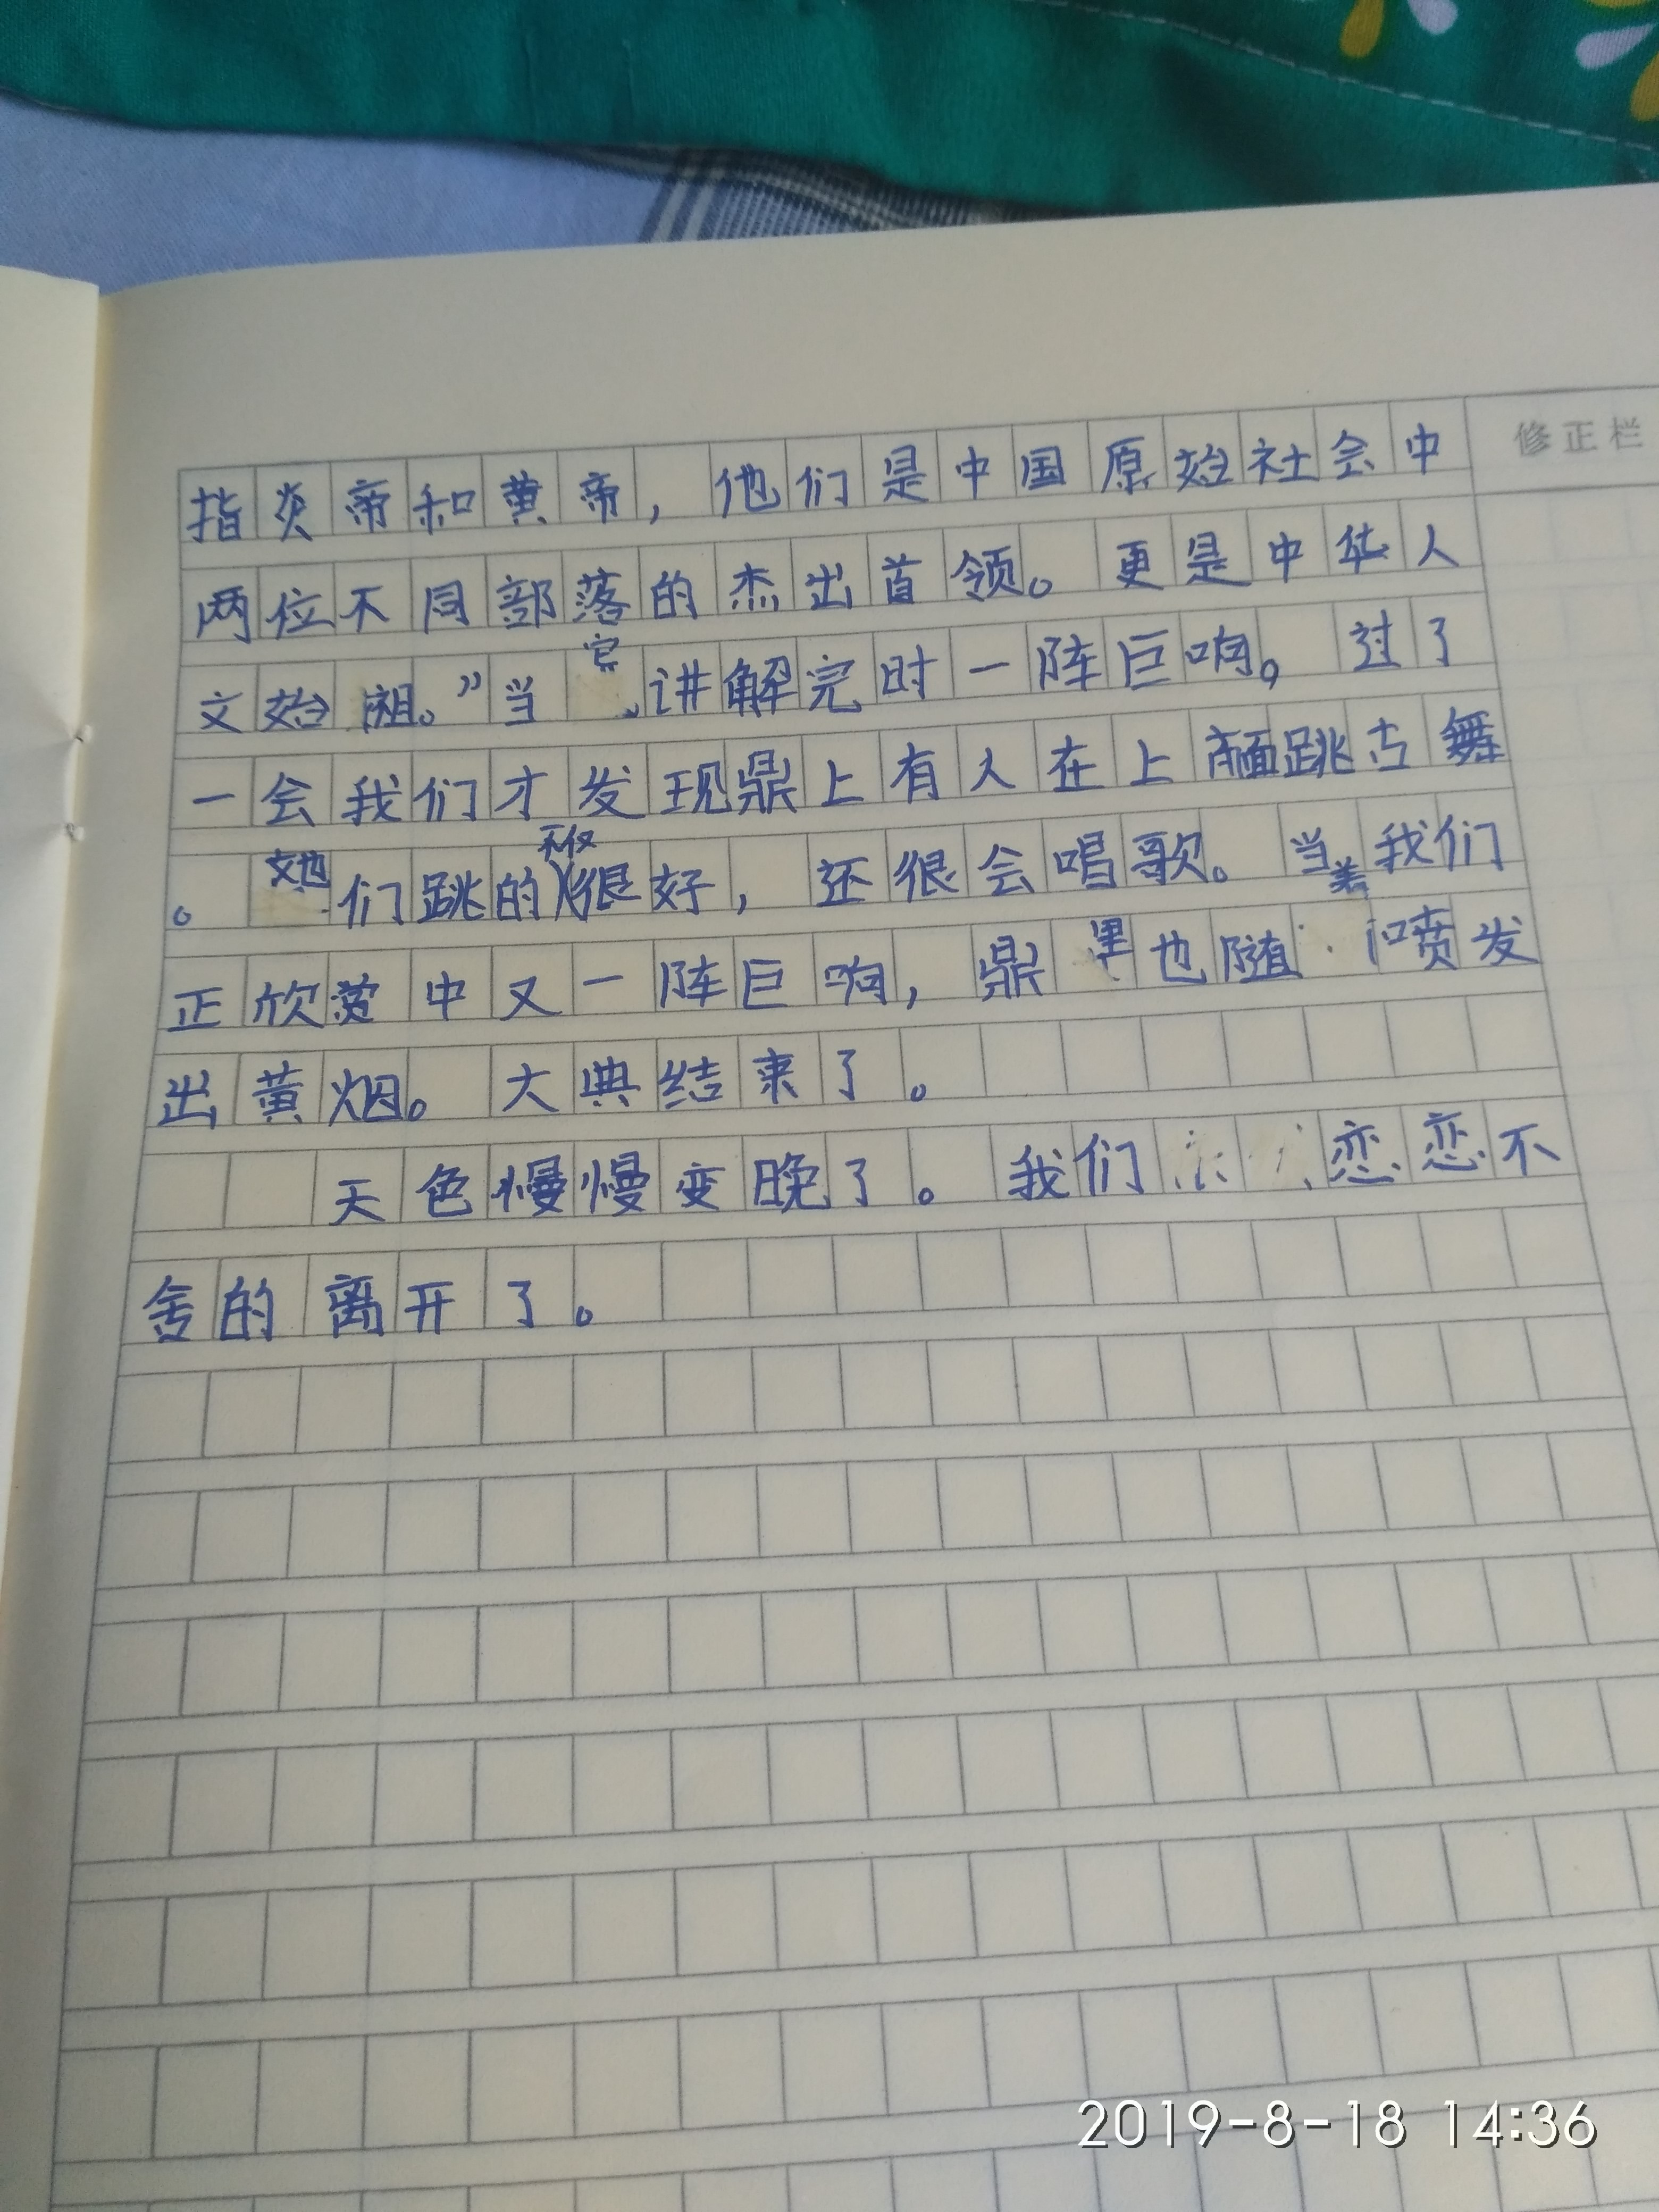 修正栏
指炎帝和黄帝，他们是中国原始社会中
两位不同部落的杰出首领。更是中华人
文始祖。”当官讲解完时一阵巨响。过了
一会我们才发现鼎上有人在上面跳古舞
。她们跳的不仅很好，还很会唱歌。当我们
正欣赏中又一阵巨响，鼎里也随着喷发
出黄烟。大典结束了。
天色慢慢变晚了。我们恋恋不
舍的离开了。
2019-8-18 14:36